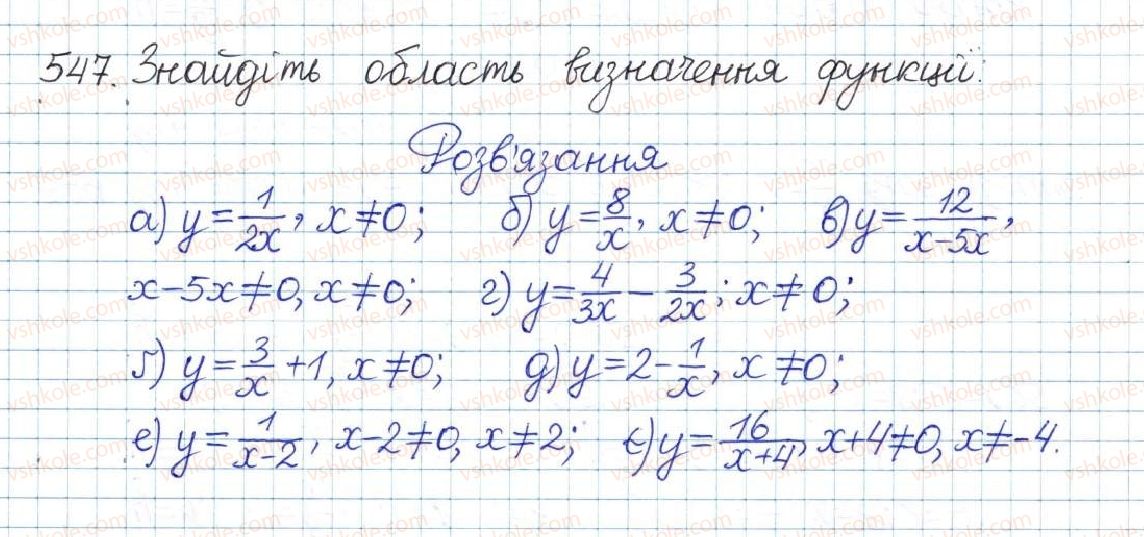 547. Знайдіть область визначення функції:
Розв'язання
а) y = 1/2x, x ≠ 0; б) y = 8/x, x ≠ 0; в) y = 12/x-5x,
x - 5x ≠ 0, x ≠ 0; г) y = 4/3x - 3/2x; x ≠ 0;
ґ) y = 3/x + 1, x ≠ 0; д) y = 2 - 1/x, x ≠ 0;
е) y = 1/x-2, x - 2 ≠ 0, x ≠ 2; є) y = 16/x+4, x + 4 ≠ 0, x ≠ -4.